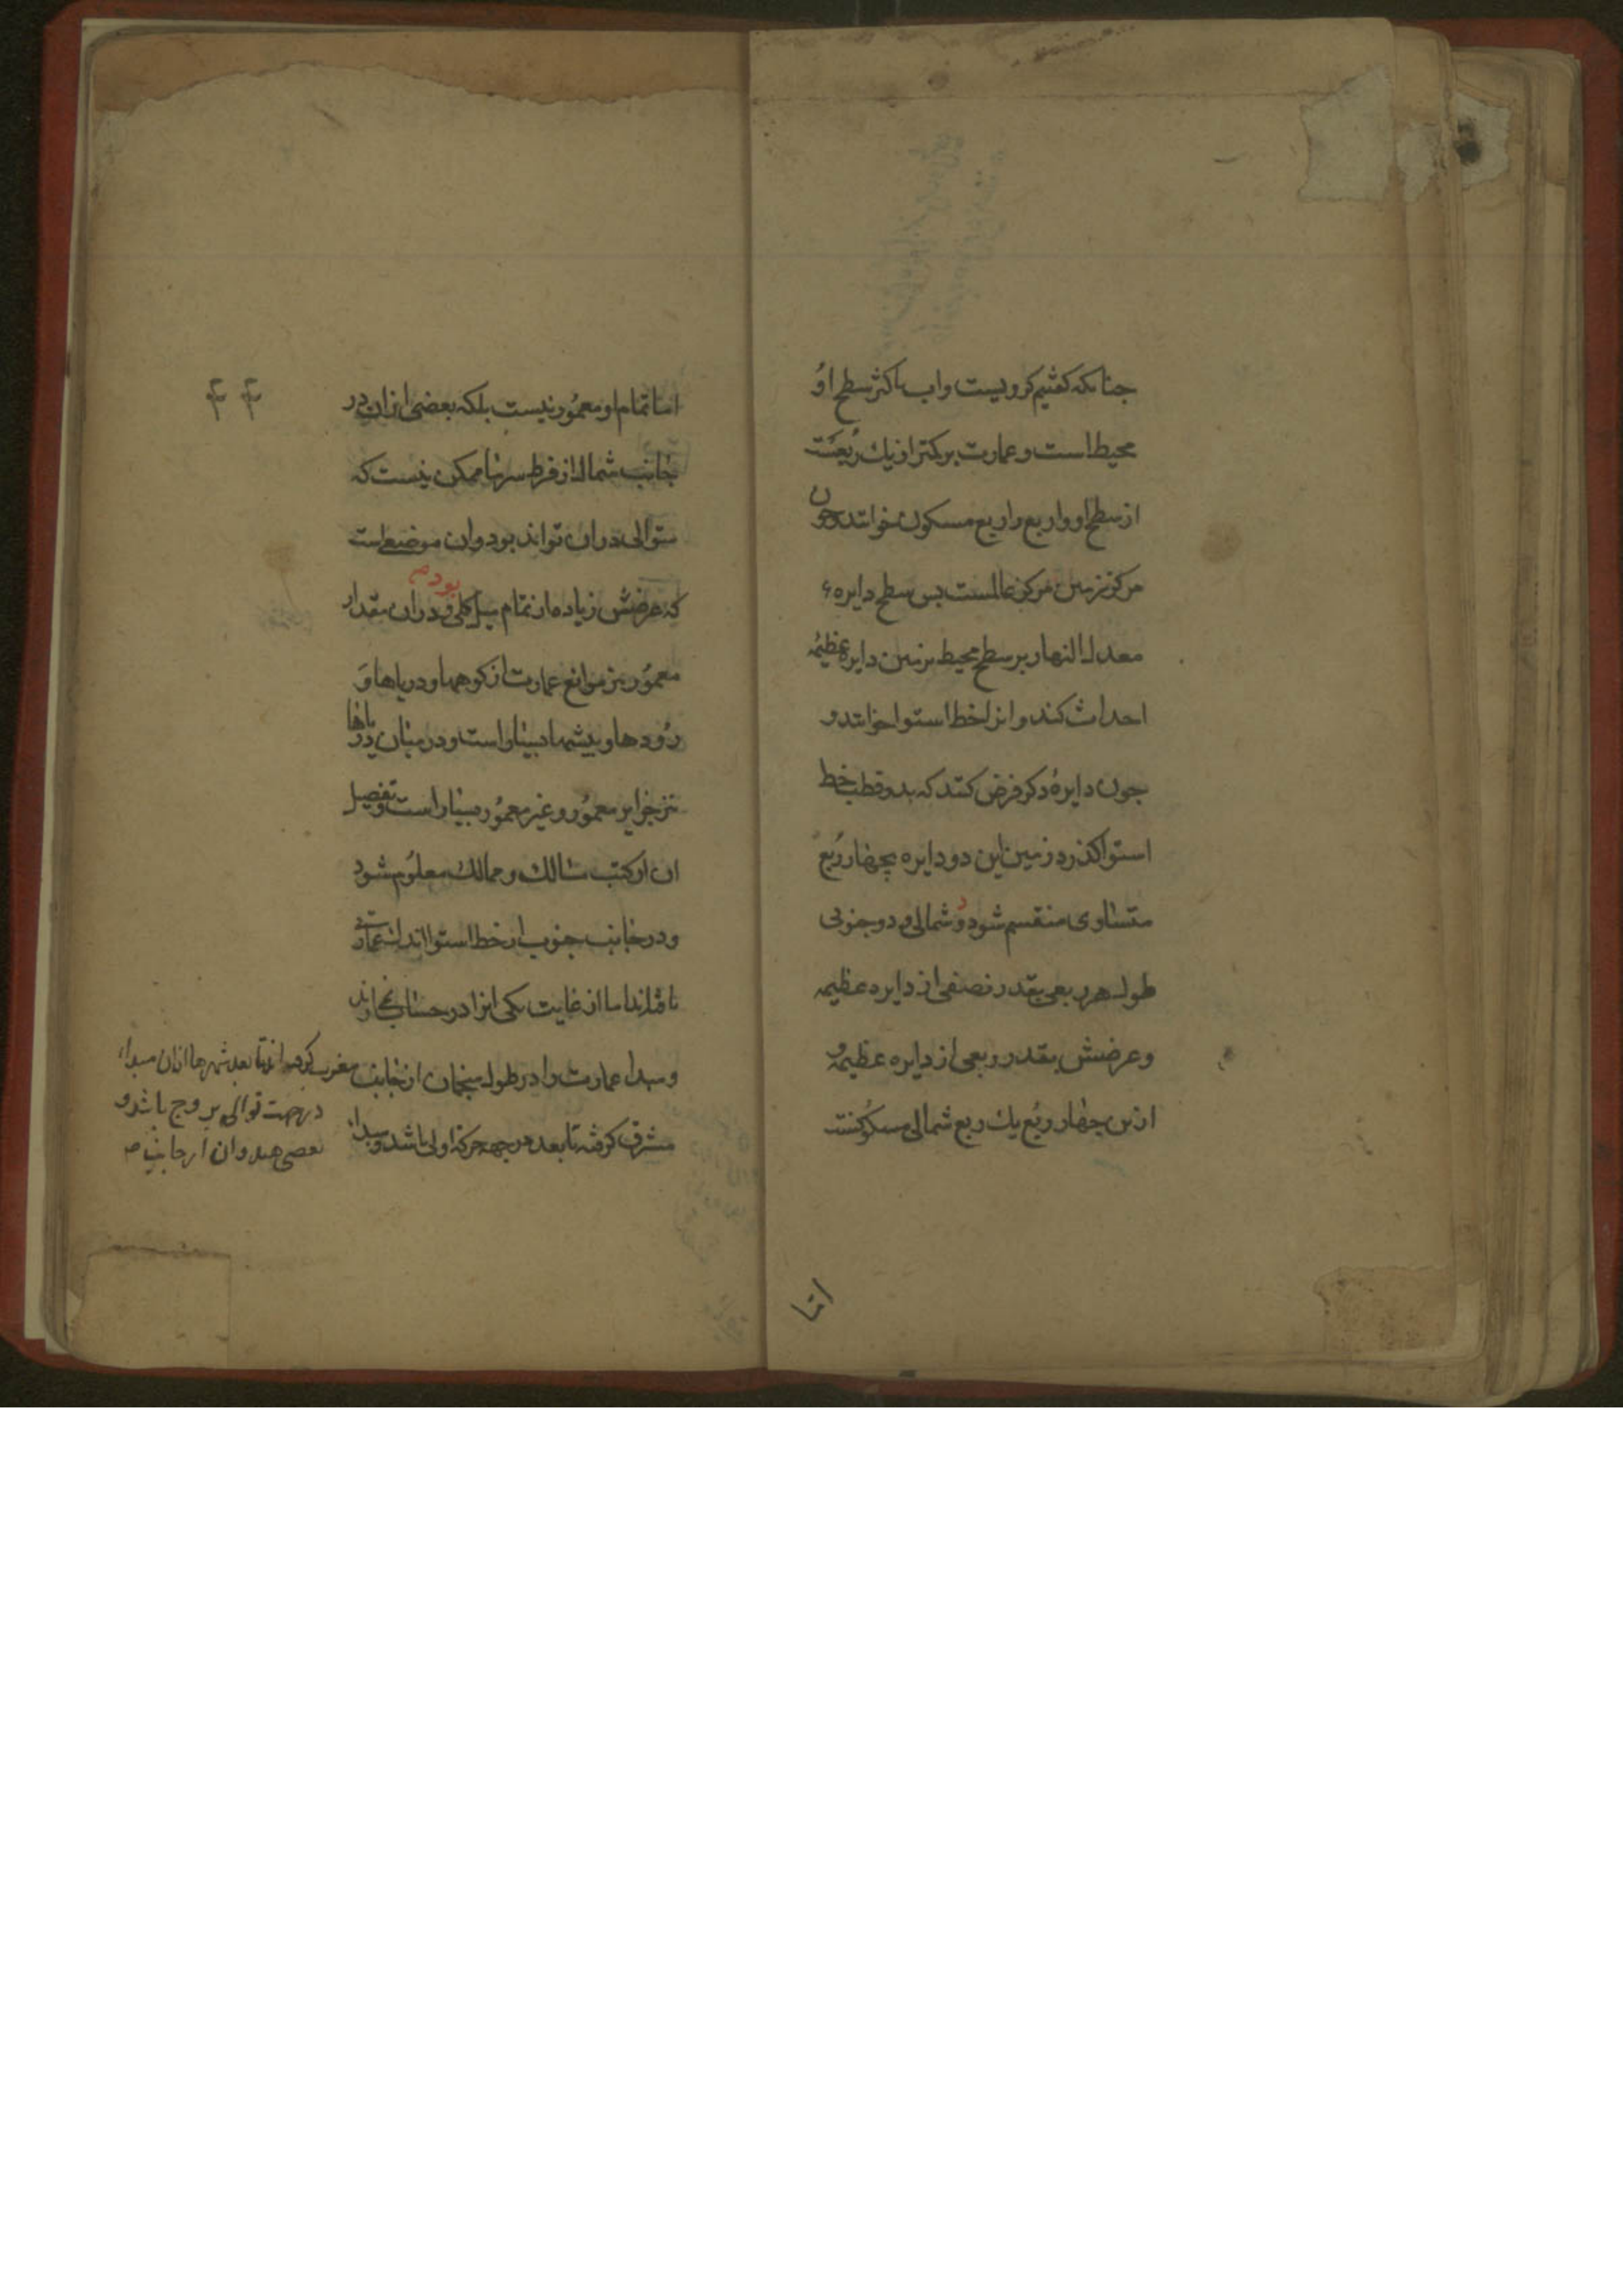 جنانکه کفتیم کرویست و اب باکثر سطح اوُ
محیط است و عمارت بر کمتر از یك رُبعست
از سطح او و ان ربع را ربع مسکون خوانند و چون
مرکز زمین مرکز عالمست بس سطح دایرهء
معدل النهار بر سطح محیط زمین دایره عظیمه
احداث کند و انرا خط استوا خوانند و
جون دایرهٔ دکر فرض کنند که بدو قطب خط
استوا کذرد زمین باین دو دایره بچهار رُبع
متساوی منقسم شود دو شمالی و دو جنوبی
طول هر ربعی بقدر نصفی از دایره عظیمه
و عرضش بقدر ربعی از دایره عظیمه و
ازین چهار رُبع یك ربع شمالی مسکُونست
اما
۴۴
اما تمام او معمُور نیست بلکه بعضی ازان در
جانب شمال از فرط سرما ممکن نیست که
متوالی دران تواند بود و ان موضعی است
که عرضش زیاده از تمام میل کلی بود و دران مقدار
معمُور نیز موانع عمارت از کوهها و دریاها وَ
رُودها و بیشها بسیار است و در میان دریاها
نیز جزایر معمُور و غیر معمُور بسیار است و تفصیل
ان از کتب مسالك و ممالك معلوُم شود
و در جانب جنوب از خط استوا اندك عمارتی
یافته‌اند اما از غایت کمی انرا در حساب نیاورده‌اند
و مبداء عمارت را در طول منجمان از جانب مغرب کرفته‌اند تا بعد شهرها ازان مبداء
در جهت توالی بروج باشد و
بعضی هندوان از جانب
مشرق کرفته تا بعد در جهه حرکة اولی باشد و مبداء